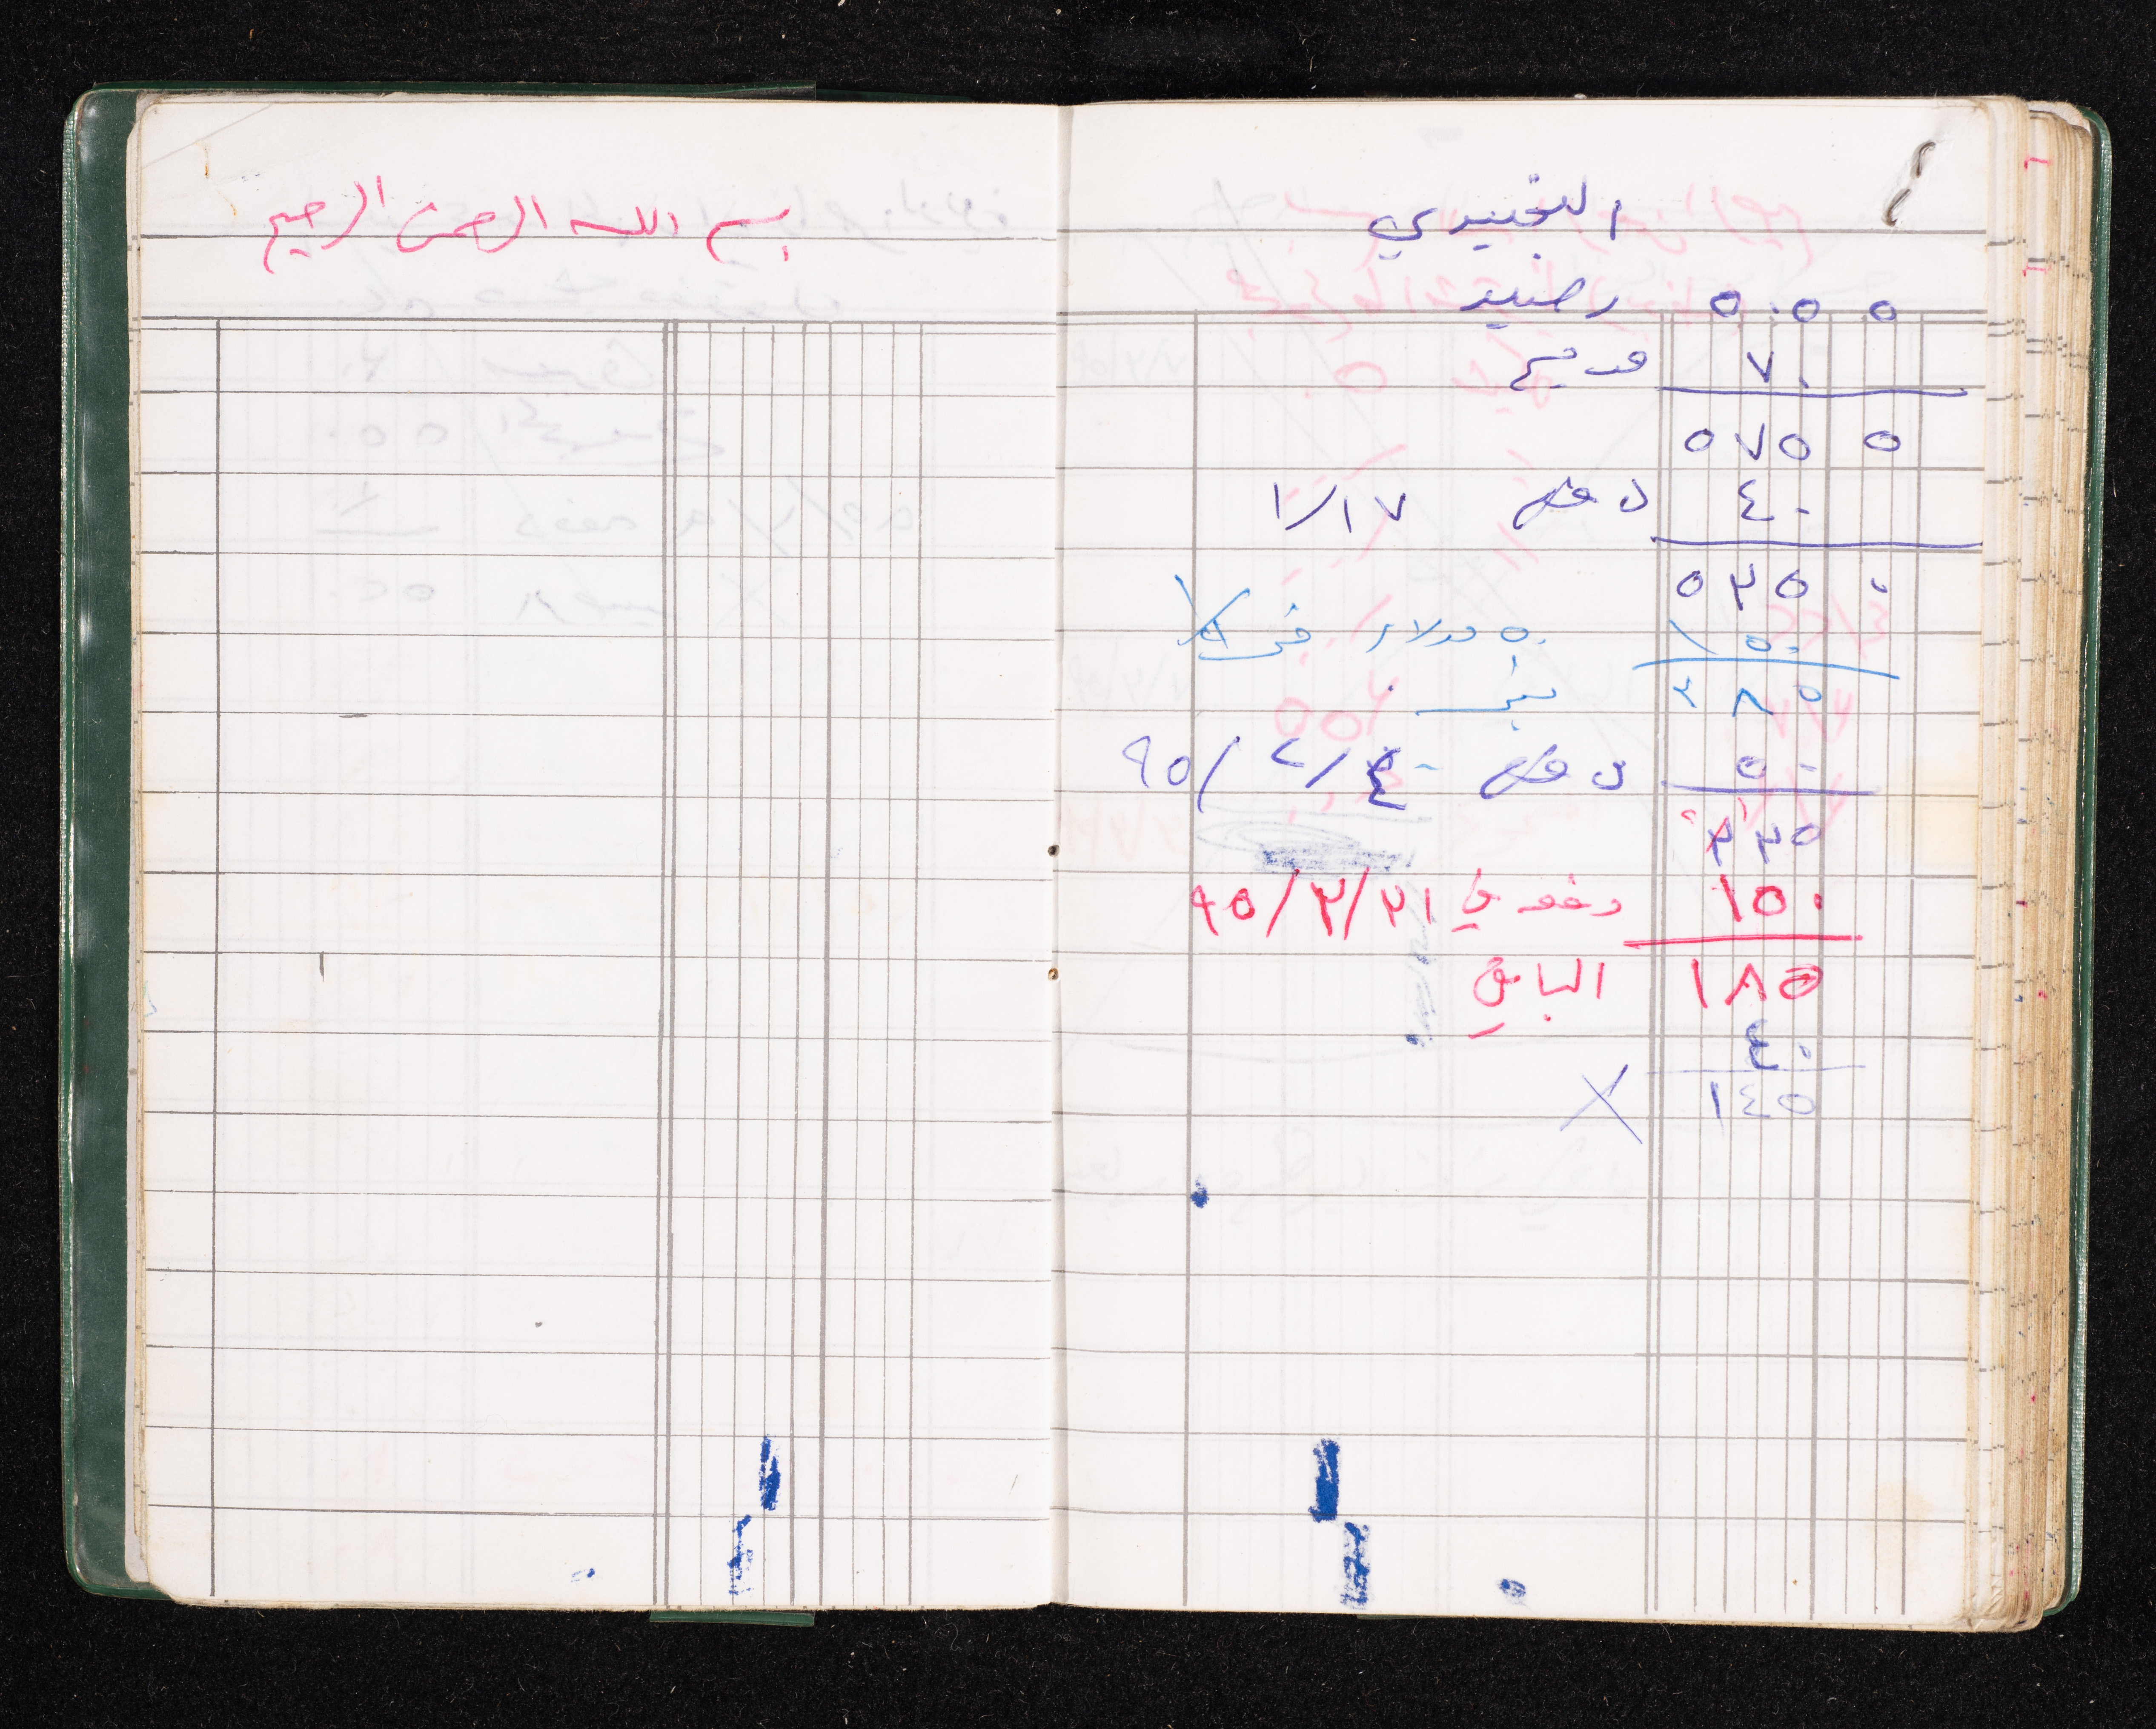 بسم الله الرحمن الرحيم
الجنيدي
رصيد ٥٠٥ ٥
قديم ٧٠
٥٧٥ ٥
دفع ١/١٧ ٤٠
٥٣٥ ٠
٥٠ دولار في ١٥٠
٣٨٥
دفع ٩٥/٢/٤ ٥٠
٣٣٥
دفعه في ٩٥/٣/٣١ ١٥٠
الباقي ١٨٥
٤٠
X ١٤٥